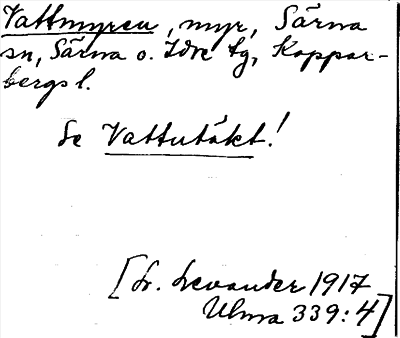 Vattmyren, myr, Särna
sn, Särna o. Idre tg, Koppar-
bergs l.
Se Vattutäkt!
[Lr. Levander 1917
Ulma 339:4]